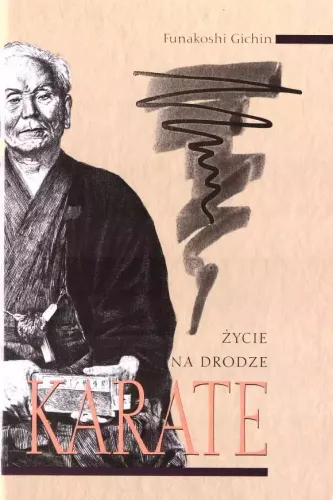 Funakoshi Gichin
ŻYCIE
NA DRODZE
KARATE